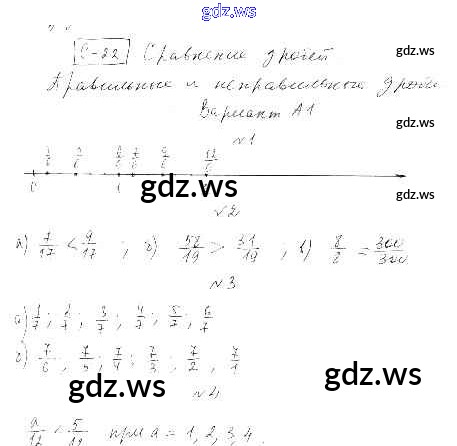 gdz.ws
С-22 Сравнение дробей. gdz.ws
Правильные и неправильные дроби
Вариант А1
gdz.ws
№1
0 1
gdz.ws gdz.ws
№2
а) 7/17 < 9/17 ; б) 52/19 > 31/19 ; в) 8/8 = 300/300
gdz.ws
№3
а) 1/7 ; 2/7 ; 3/7 ; 4/7 ; 5/7 ; 6/7
б) 7/6 , 7/5 ; 7/4 ; 7/3 ; 7/2 , 7/1
gdz.ws gdz.ws
а/12 < 5/12 при а = 1, 2, 3, 4.
gdz.ws